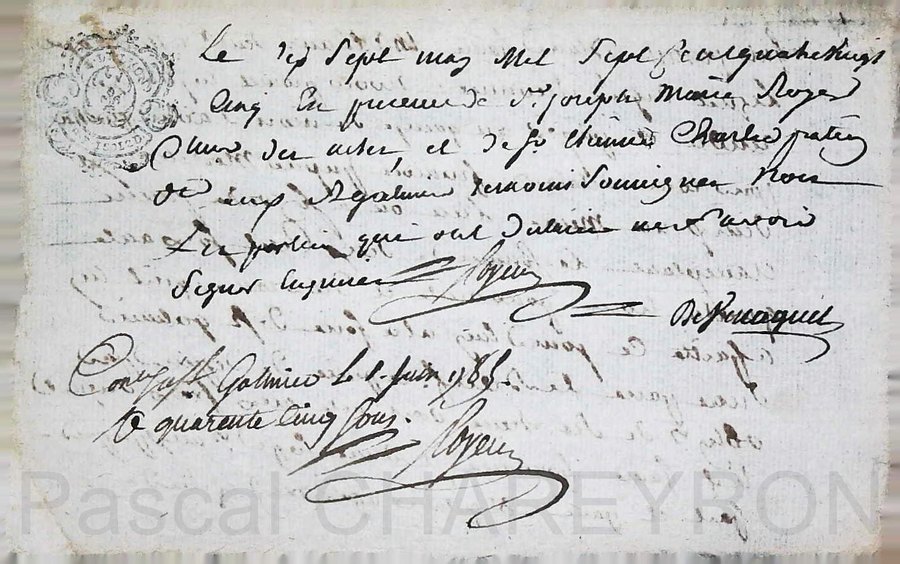 Le dix Sept may Mil Sept Cent quatre Vingt
Cinq En presence de Sr joseph Marie Royer
Clerc des actes, et de Sr Charles
de St Galmier temoins Soussignes Non
Les parties qui ont declaré ne Savoir
Signer Royer
Conlé a St Galmier Le 1. Juin 1785.
R quarente Cinq Sous. Royer
Pascal CHAREYRON